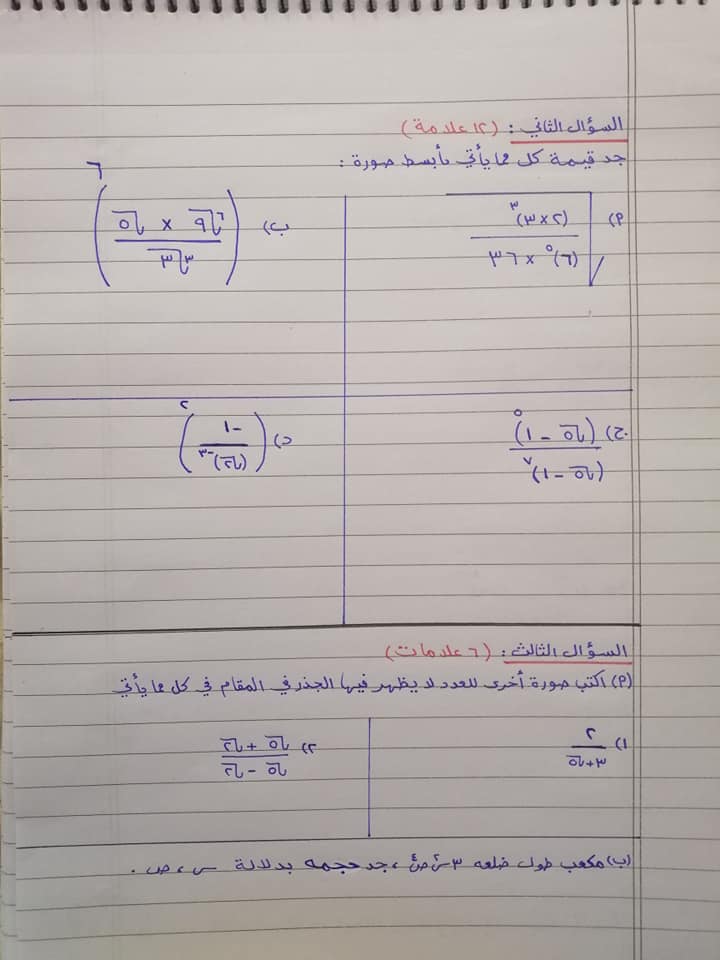 السؤال الثاني : (١٢ علامة)
جد قيمة كل مما يأتي بأبسط صورة :
أ) √((٢×٣)^٣ / ((٦)^٥ × ٣٦))
ب) ((٦√٩ × √٥) / ٣√٣)^٦
ج) (√٥ - ١)^٥ / (√٥ - ١)^٨
د) (-١ / (√٢)^-٣)^٢
السؤال الثالث : (٦ علامات)
(أ) اكتب صورة أخرى للعدد لا يظهر فيها الجذر في المقام في كل مما يأتي
١) ٢ / (٣+√٥)
٢) (√٥ + √٢) / (√٥ - √٢)
(ب) مكعب طول ضلعه ٣س ص ، جد حجمه بدلالة س ، ص .